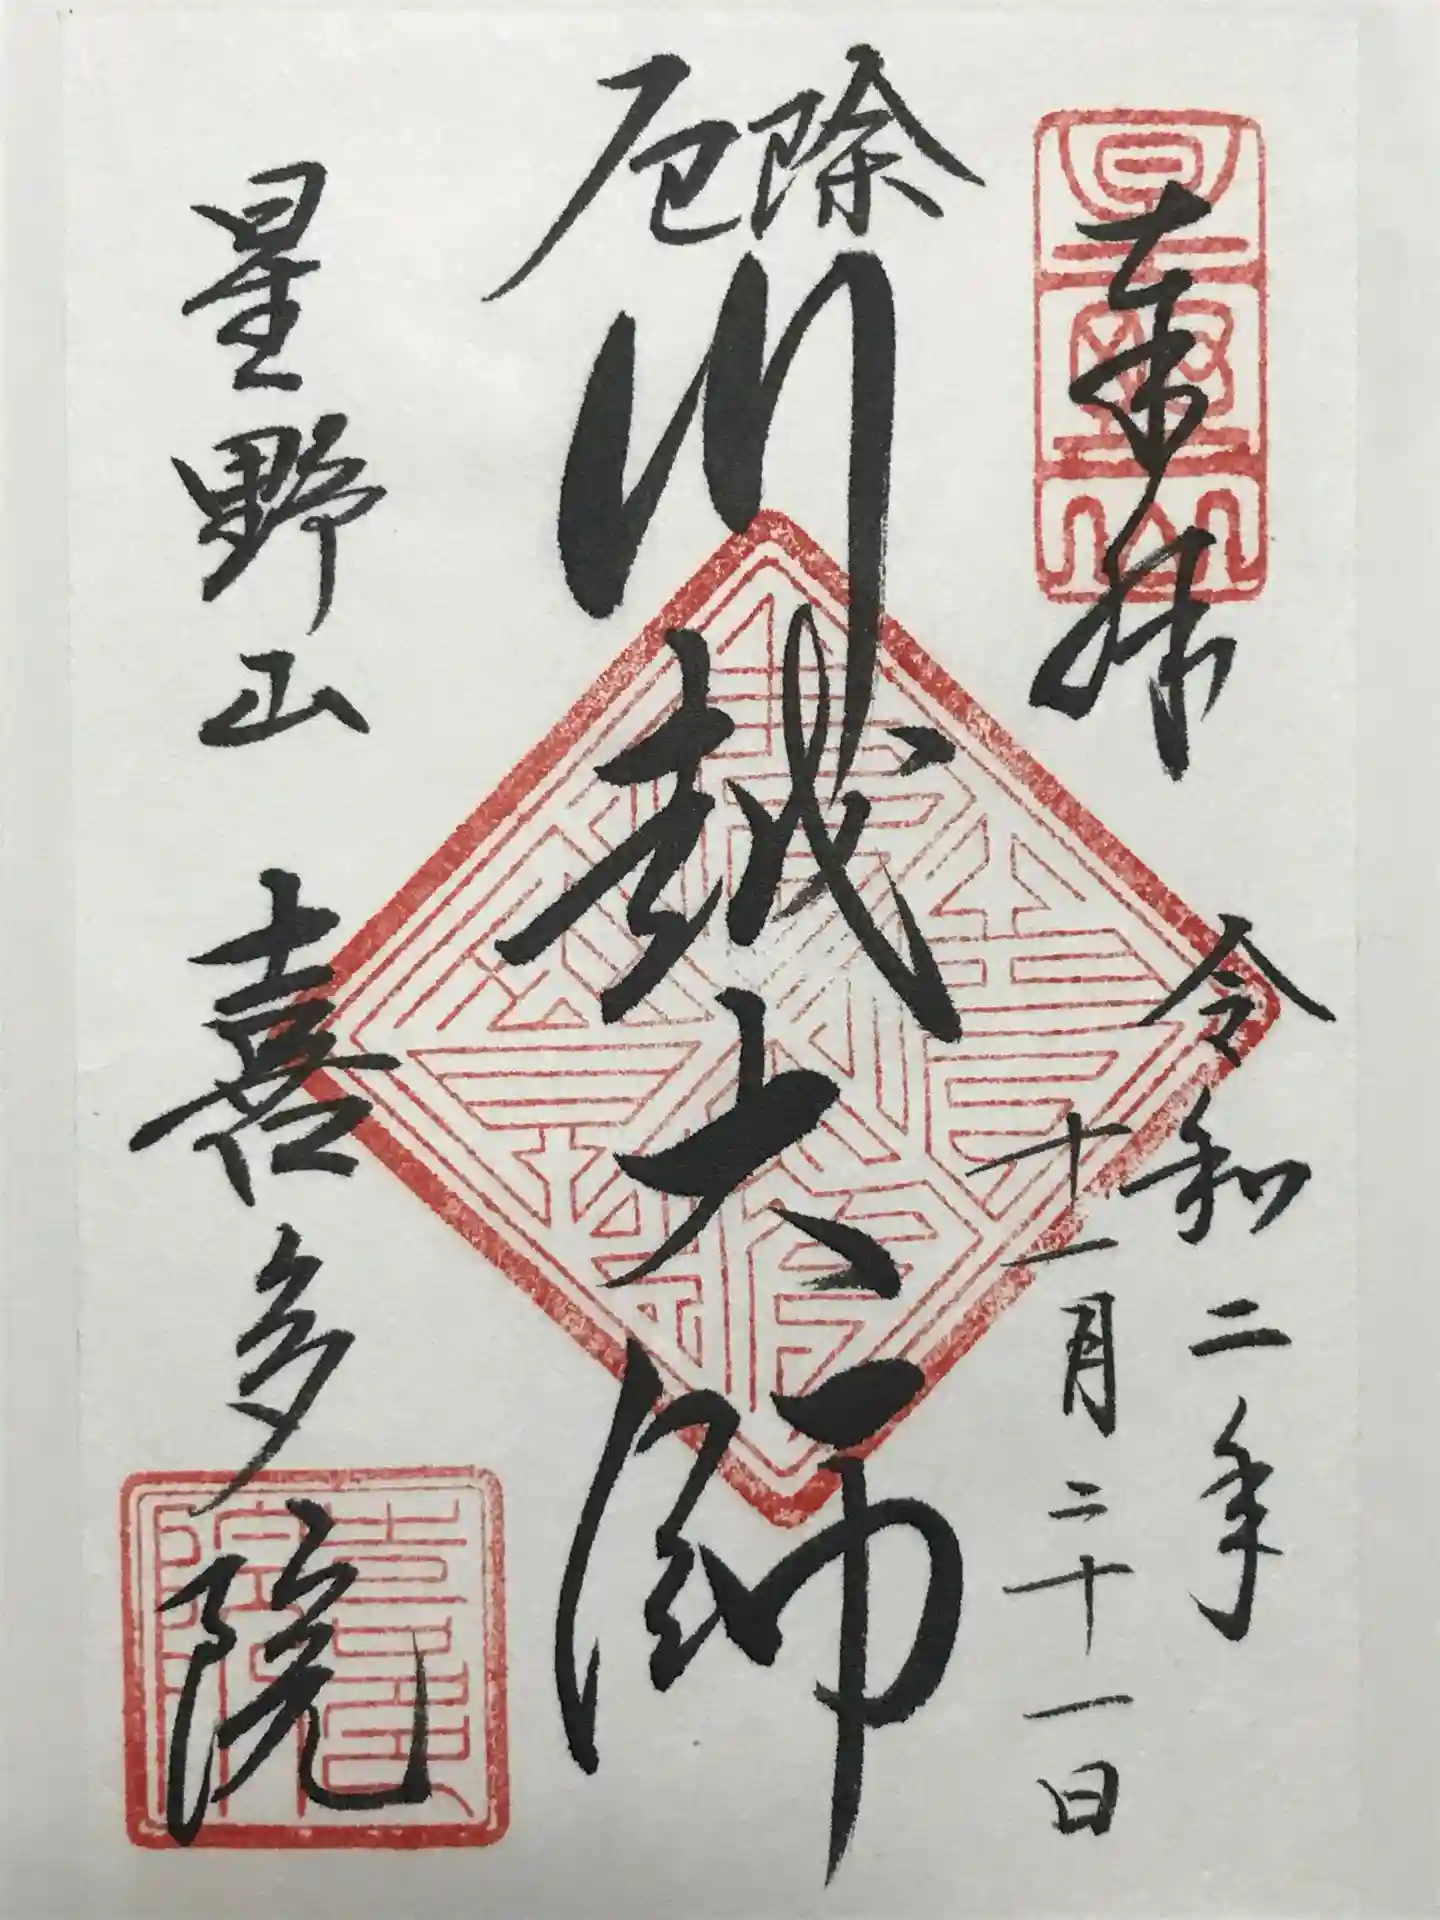 奉拝
令和二年
十一月二十一日
厄除
川越大師
星野山 喜多院
星野山
喜多院